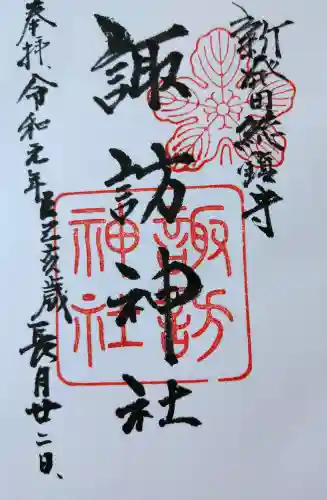 新発田総鎮守
諏訪神社
諏訪
神社
奉拝 令和元年己亥歳 長月廿二日、